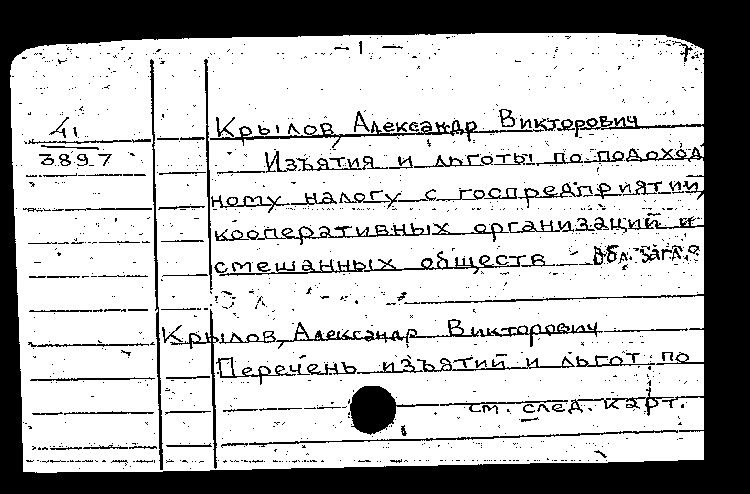 - 1 -
41
3897
Крылов, Александр Викторович
Изъятия и льготы по подоход
ному налогу с госпредприятий,
кооперативных организаций и
смешанных обществ - Обл. загл.:
Крылов, Александр Викторович
Перечень изъятий и льгот по
см. след. карт.